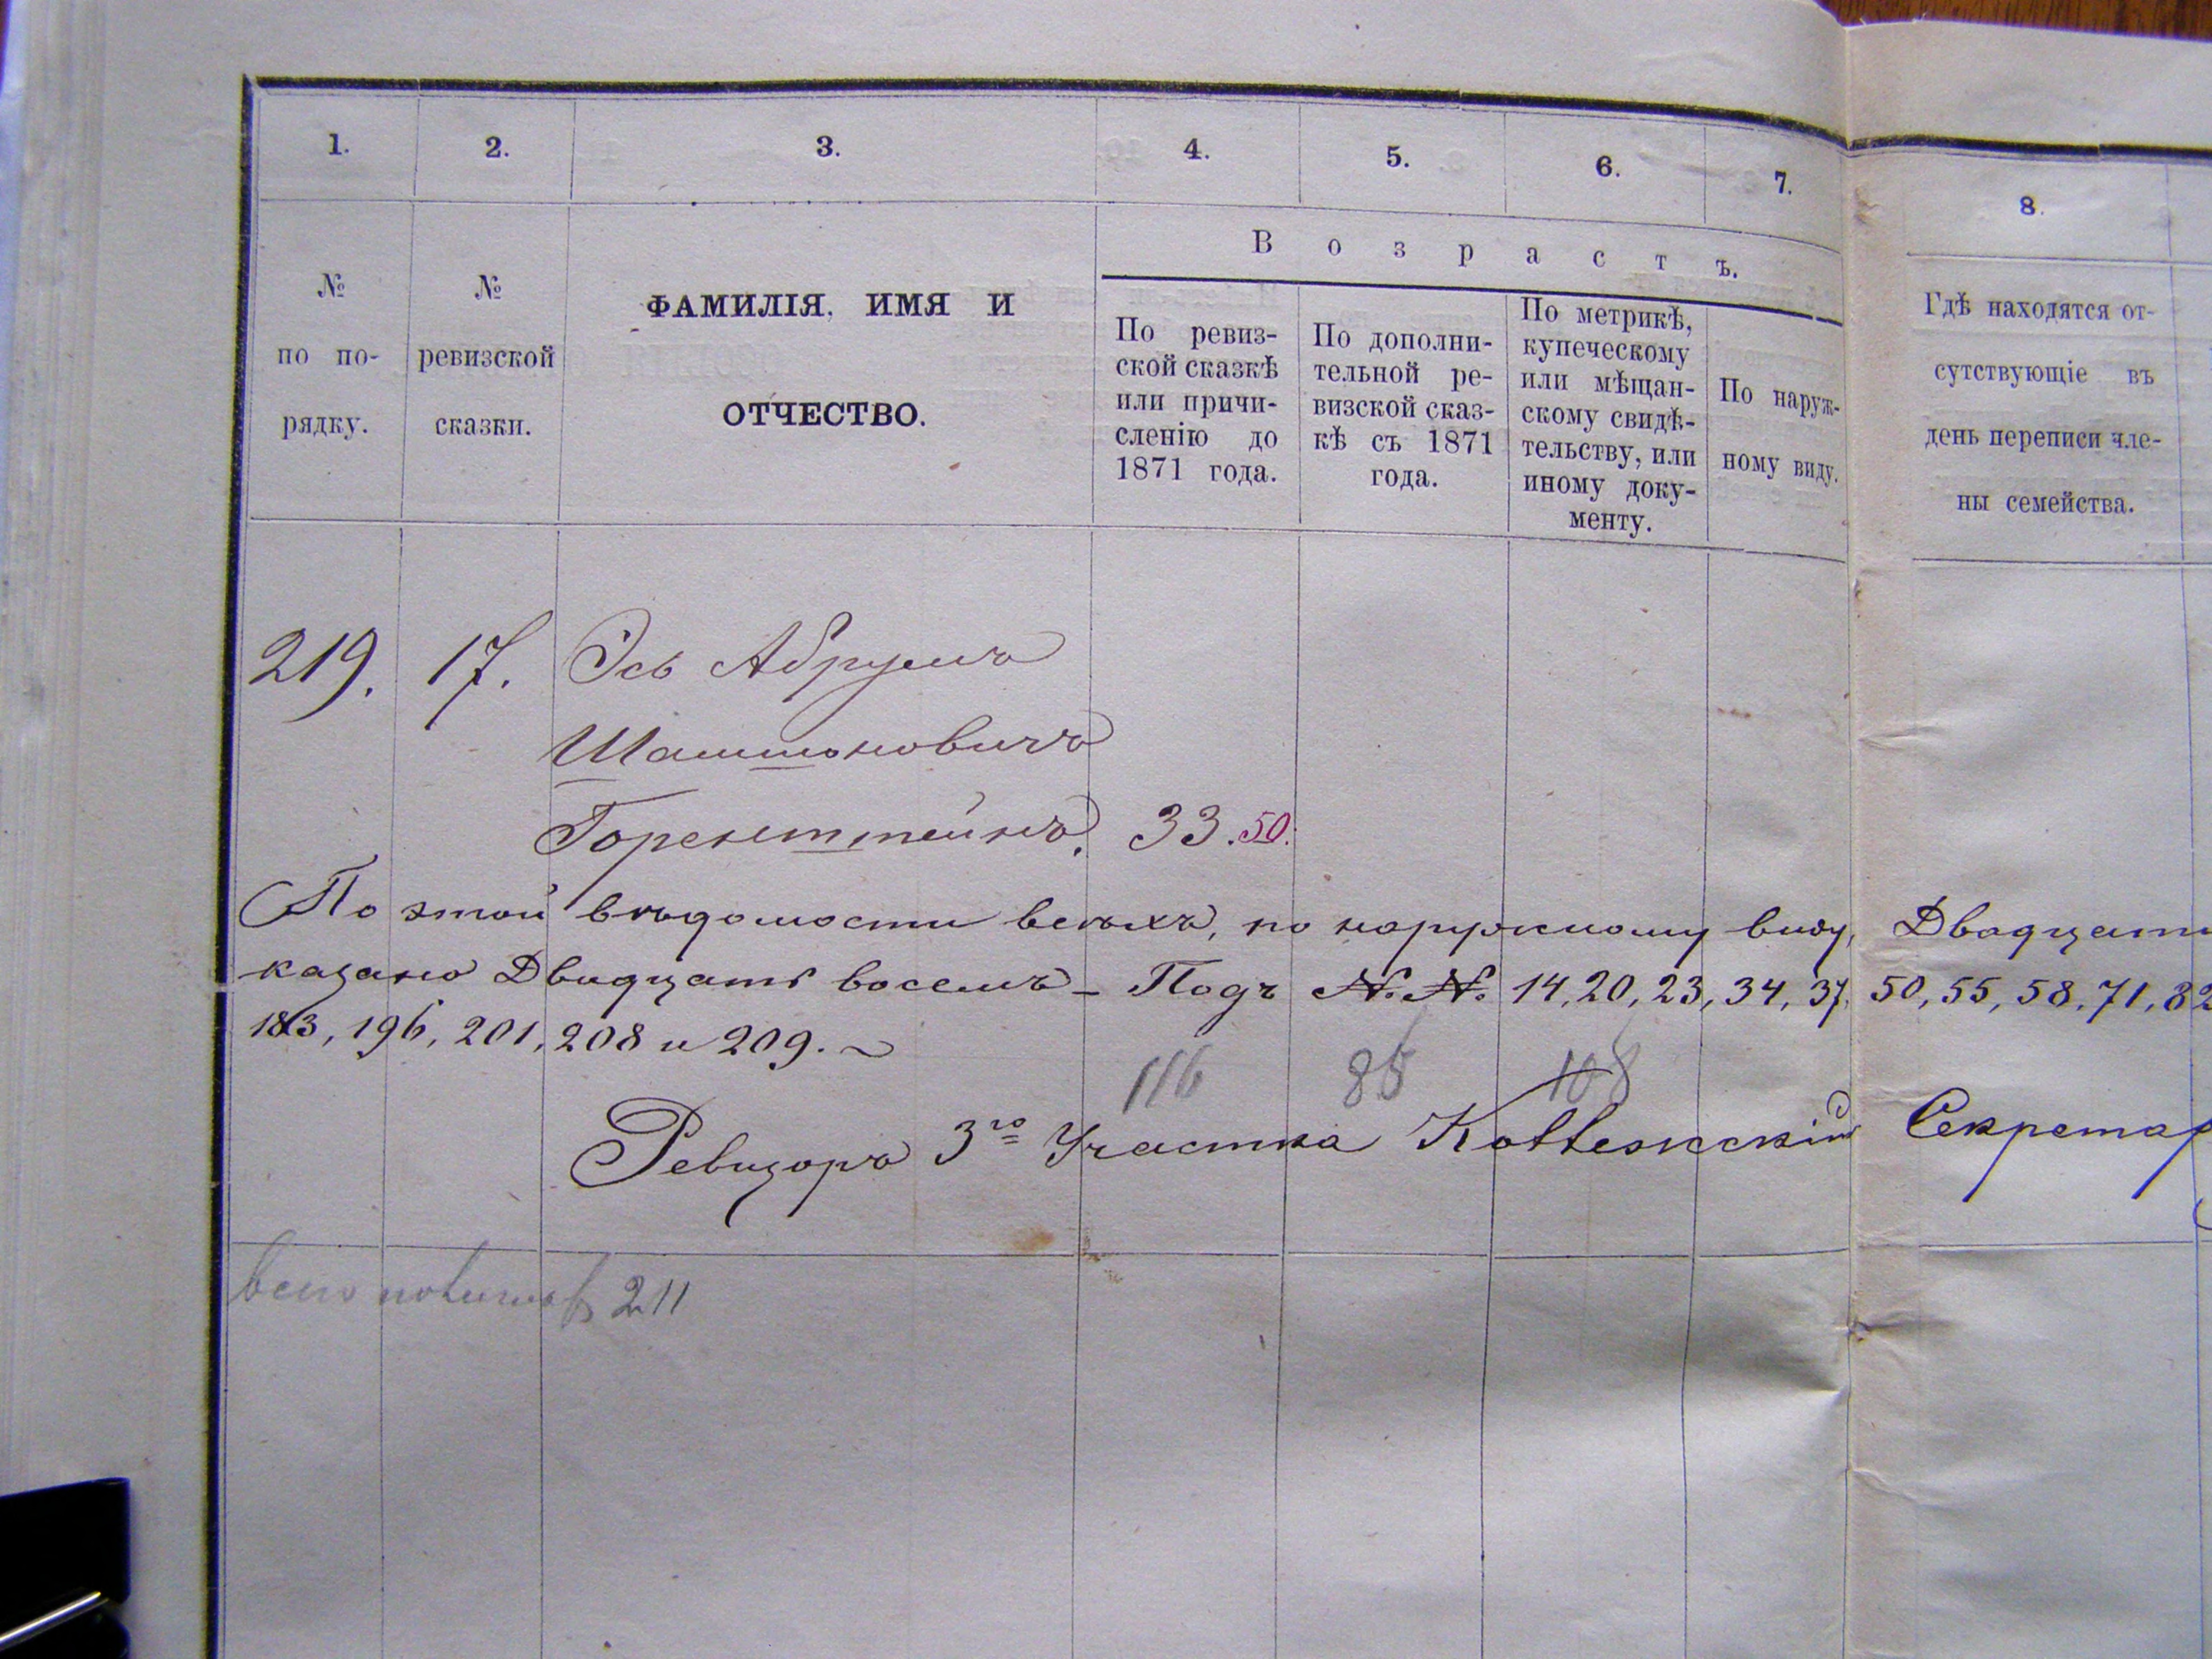 1. 2. 3. 4. 5. 6. 7. 8.
Возрастъ.
№
по по-
рядку.
№
ревизской
сказки.
ФАМИЛІЯ, ИМЯ И
ОТЧЕСТВО.
По ревиз-
ской сказкѣ
или причи-
сленію до
1871 года.
По дополни-
тельной ре-
визской сказ-
кѣ съ 1871
года.
По метрикѣ,
купеческому
или мѣщан-
скому свидѣ-
тельству, или
иному доку-
менту.
По наруж-
ному виду.
Гдѣ находятся от-
сутствующіе въ
день переписи чле-
ны семейства.
219. 17. Эсь Абрумъ
Шашшоновичъ
Горенштейнъ. 33. 50.
По этой вѣдомости всѣхъ, по наружному виду, Двадцати
казано Двадцать восемь - Подъ №№ 14, 20, 23, 34, 37, 50, 55, 58, 71, 82
183, 196, 201, 208 и 209.
116 85 108
Ревизоръ 3го Участка Секретар
всего 211